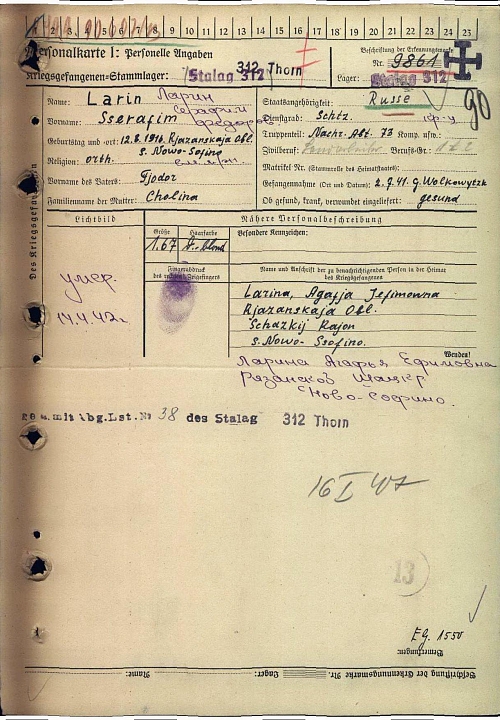 1 2 3 4 5 6 7 8 9 10 11 12 13 14 15 16 17 18 19 20 21 22 23 24 25
Personalkarte I: Personelle Angaben
Kriegsgefangenen-Stammlager: Stalag 312 Thorn
Beschriftung der Erkennungsmarke
Nr. 9861
Lager: Stalag 312
Des Kriegsgefangenen
Name: Larin Ларин
Vorname: Sserafim Серафим
Geburtstag und -ort: 12.8.1916. Rjazanskaja Obl.
s. Nowo-Sofino
Religion: orth.
Vorname des Vaters: Fjodor
Familienname der Mutter: Cholina
Staatsangehörigkeit: Russe
Dienstgrad: Schtz.
Truppenteil: Nachr. Abt. 73 Komp. usw.:
Zivilberuf: Berufs-Gr.:
Matrikel Nr. (Stammrolle des Heimatstaates):
Gefangennahme (Ort und Datum): 2.7.41. g. Wolkowyzk
Ob gesund, krank, verwundet eingeliefert: gesund
90
Lichtbild
Nähere Personalbeschreibung
Größe Haarfarbe Besondere Kennzeichen:
1.67 d. blond
Fingerabdruck
des rechten Zeigefingers
Name und Anschrift der zu benachrichtigenden Person in der Heimat
des Kriegsgefangenen
Larina, Agafja Jefimowna
Rjazanskaja Obl.
Schazkij Rajon
s. Nowo-Ssofino.
умер.
14.4.42г.
Wenden!
Ларина Агафья Ефимовна
Рязанской Шацкр
Ново-Софино.
mit Abg.Lst.Nr 38 des Stalag 312 Thorn
16 I 47
13
E.G. 1550
Bemerkungen:
Beschriftung der Erkennungsmarke Nr. Lager: Name: